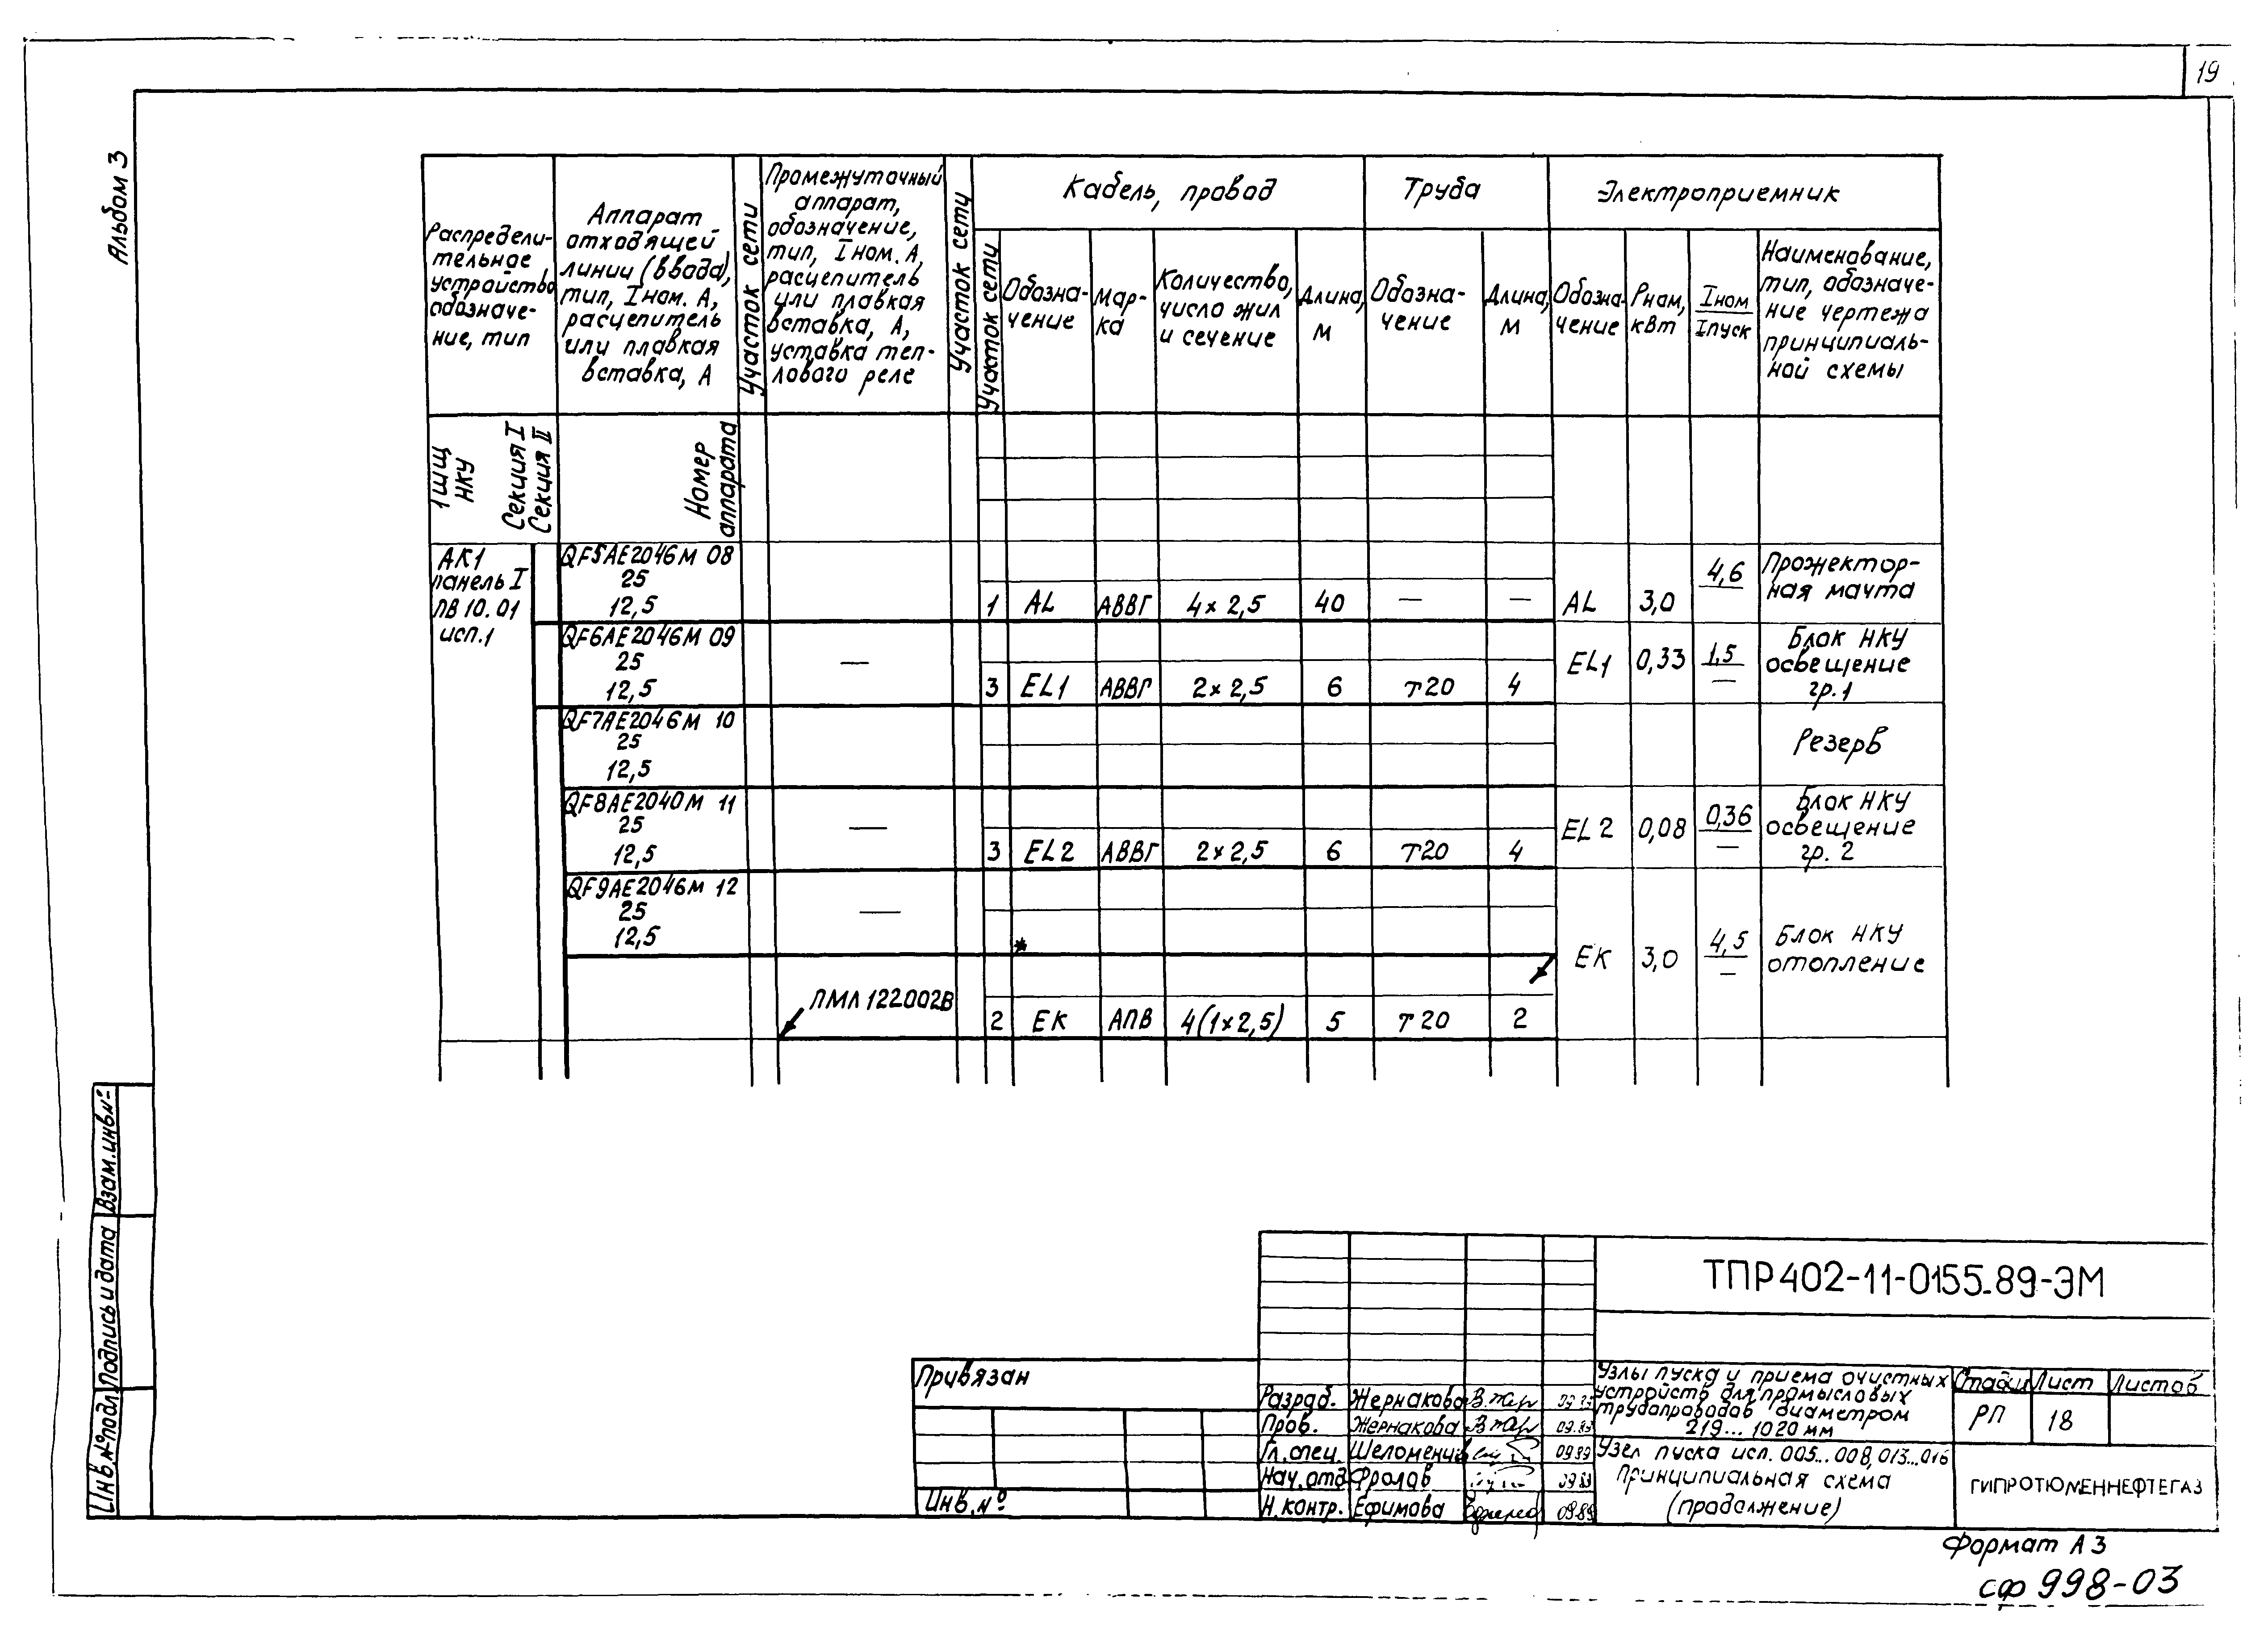 19
Альбом 3
Распредели-
тельное
устройство
обозначе-
ние, тип
Аппарат
отходящей
линии (ввода),
тип, Iном. А,
расцепитель
или плавкая
вставка, А
Участок сети
Промежуточный
аппарат,
обозначение,
тип, Iном. А,
расцепитель
или плавкая
вставка, А,
уставка теп-
лового реле
Участок сети
Кабель, провод
Труба
Электроприемник
Участок сети
Обозна-
чение
Мар-
ка
Количество,
число жил
и сечение
Длина,
м
Обозна-
чение
Длина,
м
Обозна-
чение
Рном,
кВт
Iном
Iпуск
Наименование,
тип, обозначе-
ние чертежа
принципиаль-
ной схемы
1ЩЩ
НКУ
Секция I
Секция II
Номер
аппарата
АК1
панель I
ПВ10.01
исп.1
QF5АЕ2046М 08
25
12,5
1 AL АВВГ 4×2,5 40 — —
AL 3,0 4,6
Прожектор-
ная мачта
QF6АЕ2046М 09
25
12,5
—
3 EL1 АВВГ 2×2,5 6 т20 4
EL1 0,33 1,5
—
Блок НКУ
освещение
гр.1
QF7АЕ2046М 10
25
12,5
Резерв
QF8АЕ2040М 11
25
12,5
—
3 EL2 АВВГ 2×2,5 6 т20 4
EL2 0,08 0,36
—
Блок НКУ
освещение
гр. 2
QF9АЕ2046М 12
25
12,5
—
*
ПМЛ122002В
2 ЕК АПВ 4(1×2,5) 5 т20 2
ЕК 3,0 4,5
—
Блок НКУ
отопление
Взам.инв.№
Подпись и дата
Инв.№подл.
Привязан
Инв.№
ТПР402-11-0155.89-ЭМ
Разраб. Жернакова 09.89
Пров. Жернакова 09.89
Гл.спец. 09.89
Нач.отд Фролов 09.89
Н.контр. Ефимова 09.89
Узлы пуска и приема очистных
устройств для промысловых
трубопроводов диаметром
219...1020 мм
Стадия Лист Листов
РП 18
Узел пуска исп. 005...008, 013...016
Принципиальная схема
(продолжение)
ГИПРОТЮМЕННЕФТЕГАЗ
Формат А3
сф 998-03